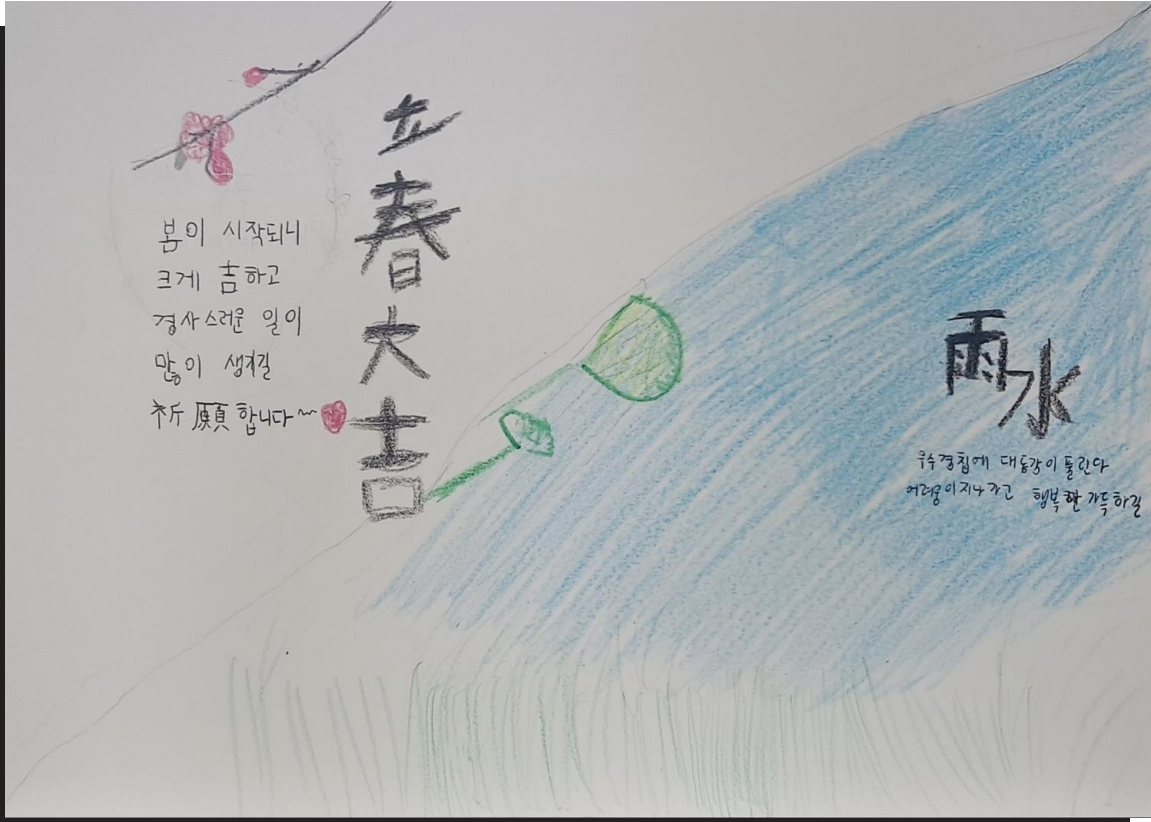 봄이 시작되니
크게 吉하고
경사스러운 일이
많이 생기길
祈願합니다~
立春大吉
雨水
우수경칩에 대동강이 풀린다
어려움이지나가고 행복한 가득하길